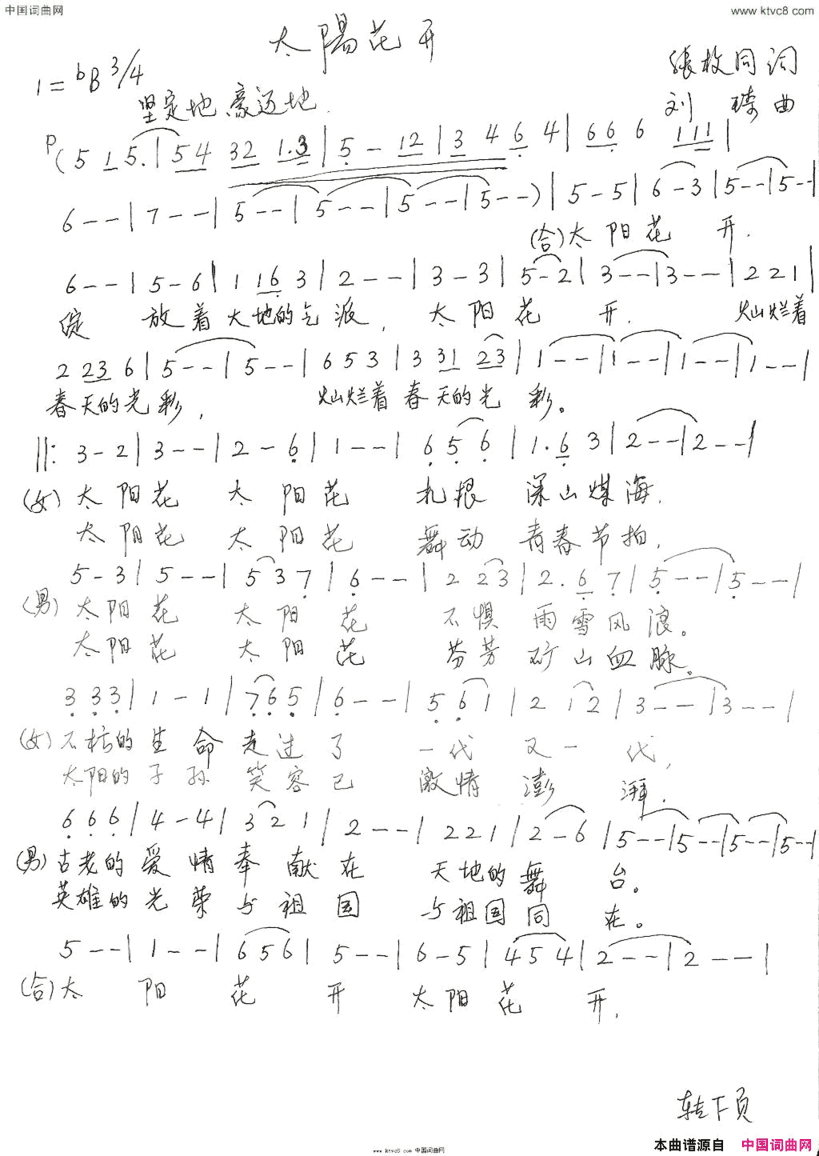 中国词曲网
www.ktvc8.com
太陽花开
1=bB 3/4
张枚同词
坚定地、豪迈地
刘 琦曲
P(5 1 5.|54 32 1.3|5 - 12|3 4 6 4|66 6 111|
6--|7--|5--|5--|5--|5--)|5-5|6-3|5--|5--|
(合)太 阳花 开.
6--|5-6|1 116 3|2--|3-3|5-2|3--|3--|221|
绽 放着大地的气派, 太 阳花 开. 灿烂着
2 23 6|5--|5--|653|3 31 23|1--|1--|1--|1--|
春天的光彩, 灿烂着春天的光 彩。
||:3-2|3--|2-6|1--|656|1.63|2--|2--|
(女)太 阳花 太 阳花 扎根 深山煤海.
太 阳花 太 阳花 舞动 青春节拍,
5-3|5--|537|6--|2 23|2.67|5--|5--|
(男)太 阳花 太 阳 花 不惧 雨雪风浪。
太 阳花 太 阳 花 芬芳 矿山血脉。
333|1-1|765|6--|561|2 12|3--|3--|
(女)不朽的生 命走过了 一代 又一 代,
太阳的子 孙笑容已 激情 澎 湃.
666|4-4|321|2--|221|2-6|5--|5--|5--|5--
(男)古老的爱 情奉献在 天地的舞 台。
英雄的光 荣与祖国 与祖国同 在。
5--|1--|656|5--|6-5|454|2--|2--|
(合)太 阳 花 开 太阳花 开.
转下页
本曲谱源自 中国词曲网
www.ktvc8.com 中国词曲网